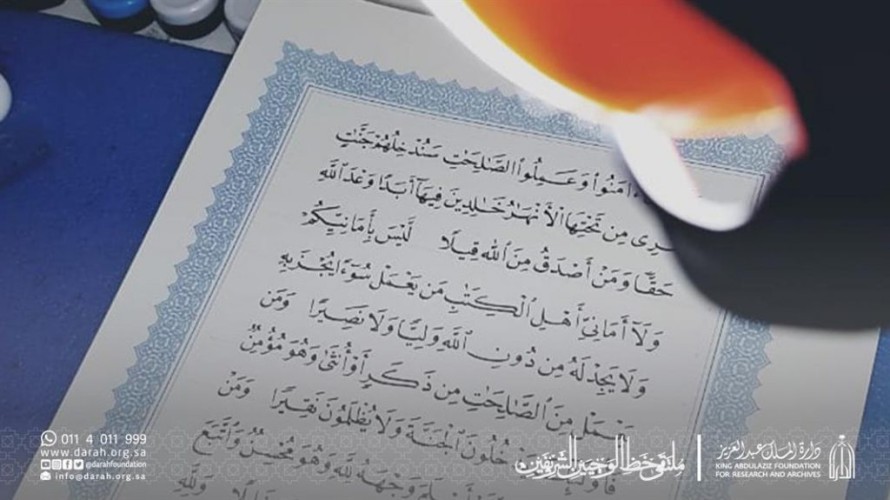 ءَامَنُوا۟ وَعَمِلُوا۟ الصَّٰلِحَٰتِ سَنُدْخِلُهُمْ جَنَّٰتٍ
مِن تَحْتِهَا الْأَنْهَٰرُ خَٰلِدِينَ فِيهَآ أَبَدًا وَعْدَ اللَّهِ
حَقًّا وَمَنْ أَصْدَقُ مِنَ اللَّهِ قِيلًا لَّيْسَ بِأَمَانِيِّكُمْ
وَلَآ أَمَانِيِّ أَهْلِ الْكِتَٰبِ مَن يَعْمَلْ سُوٓءًا يُجْزَ بِهِ
وَلَا يَجِدْ لَهُ مِن دُونِ اللَّهِ وَلِيًّا وَلَا نَصِيرًا وَمَن
يَعْمَلْ مِنَ الصَّٰلِحَٰتِ مِن ذَكَرٍ أَوْ أُنثَىٰ وَهُوَ مُؤْمِنٌ
الْجَنَّةَ وَلَا يُظْلَمُونَ نَقِيرًا وَمَنْ
وَجْهَهُ لِلَّهِ وَهُوَ مُحْسِنٌ وَاتَّبَعَ
011 4 011 999
www.darah.org.sa
@darahfoundation
info@darah.org.sa
ملتقى خط الوحيين الشريفين
دارة الملك عبدالعزيز
KING ABDULAZIZ FOUNDATION
FOR RESEARCH AND ARCHIVES